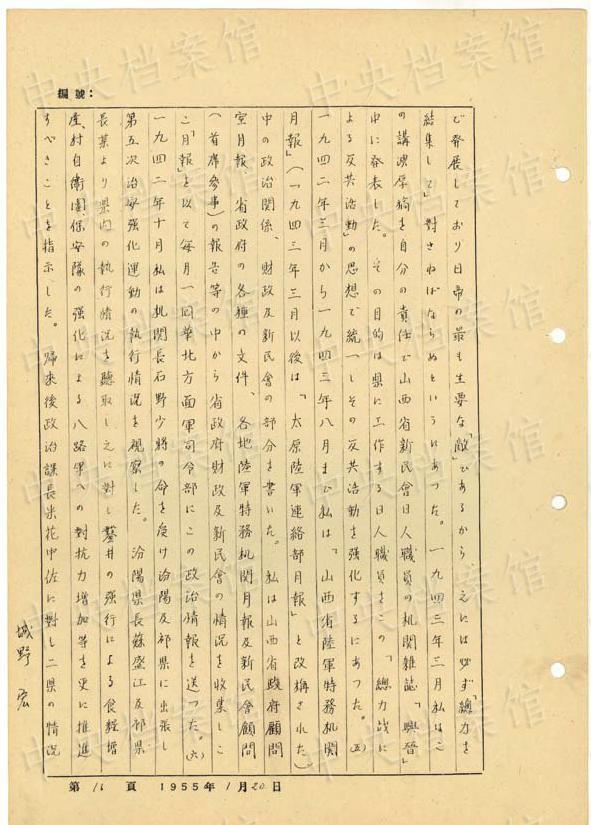 編號：
で発展しており日帝の最も主要な「敵」であるから、之には必ず「總力を
結集して」對さねばならぬというにあった。一九四三年三月私はこ
の講演原稿を自分の責任で山西省新民會日人職員の机関雑誌「興晉」
中に発表した。その目的は県に工作する日人職員をこの「總力戦に
よる反共活動」の思想で統一しその反共活動を強化するにあった。(五)
一九四二年三月から一九四三年八月まで私は「山西省陸軍特務机関
月報」（一九四三年三月以後は「太原陸軍連絡部月報」と改稱された）
中の政治関係、財政及新民會の部分を書いた。私は山西省政府顧問
室月報、省政府の各種の文件、各地陸軍特務机関月報及新民會顧問
（首席参事）の報告等の中から省政府財政及新民會の情況を收集しこ
こ「月報」を以て毎月一回華北方面軍司令部にこの政治情報を送った。(六)
一九四二年十月私は机関長石野少将の命を受け汾陽及祁県に出張し
第五次治安強化運動の執行情況を視察した。汾陽県長蘇盛江及祁県
長葉より県内の執行情況を聽取し之に對し鑿井の強行による食糧增
産、村自衛團保安隊の強化による八路軍への對抗力增加等を更に推進
すべきことを指示した。帰來後政治課長米花中佐に對し二県の情況
城野宏
第 16 頁 1955年 1月20日
中央档案馆